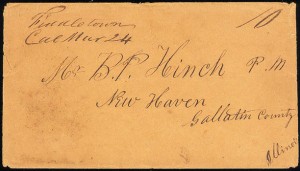 Fiddletown
Cal Mar 24
10
Mr. B. P. Hinch P. M
New Haven
Gallatin County
Illinois